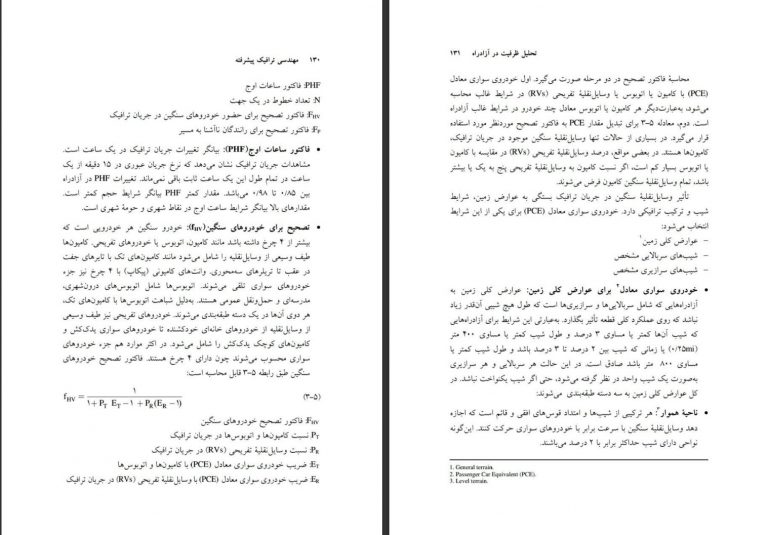 ۱۳۰ مهندسی ترافیک پیشرفته
PHF: فاکتور ساعات اوج
N: تعداد خطوط در یک جهت
FHV: فاکتور تصحیح برای حضور خودروهای سنگین در جریان ترافیک
FP: فاکتور تصحیح برای رانندگان ناآشنا به مسیر
• فاکتور ساعات اوج(PHF): بیانگر تغییرات جریان ترافیک در یک ساعت است.
مشاهدات جریان ترافیک نشان می‌دهد که نرخ جریان عبوری در ۱۵ دقیقه از یک
ساعت در تمام طول این یک ساعت ثابت باقی نمی‌ماند. تغییرات PHF در آزادراه
بین ۰/۸۵ تا ۰/۹۸ می‌باشد. مقدار کمتر PHF بیانگر شرایط حجم کمتر است.
مقدارهای بالا بیانگر شرایط ساعت اوج در نقاط شهری و حومۀ شهری است.
• تصحیح برای خودروهای سنگین(fHV): خودرو سنگین هر خودرویی است که
بیشتر از ۴ چرخ داشته باشد مانند کامیون، اتوبوس یا خودروهای تفریحی. کامیون‌ها
طیف وسیعی از وسایل‌نقلیه را شامل می‌شود مانند کامیون‌های تک با تایرهای جفت
در عقب تا تریلرهای سه‌محوری. وانت‌های کامیونی (پیکاپ) با ۴ چرخ نیز جزء
خودروهای سواری تلقی می‌شوند. اتوبوس‌ها شامل اتوبوس‌های درون‌شهری،
مدرسه‌ای و حمل‌ونقل عمومی هستند. به‌دلیل شباهت اتوبوس‌ها با کامیون‌های تک،
هر دوی آن‌ها در یک دسته طبقه‌بندی می‌شوند. خودروهای تفریحی نیز طیف وسیعی
از وسایل‌نقلیه از خودروهای خانه‌ای خودکشنده تا خودروهای سواری یدک‌کش و
کامیون‌های کوچک یدک‌کش را شامل می‌شود. در اکثر موارد هم جزء خودروهای
سواری محسوب می‌شوند چون دارای ۴ چرخ هستند. فاکتور تصحیح خودروهای
سنگین طبق رابطه ۵-۳ قابل محاسبه است:
fHV = ۱ / ۱+PT ET−۱ + PR(ER−۱) (۳-۵)
FHV: فاکتور تصحیح خودروهای سنگین
PT: نسبت کامیون‌ها و اتوبوس‌ها در جریان ترافیک
PR: نسبت وسایل‌نقلیۀ تفریحی (RVs) در جریان ترافیک
ET: ضریب خودروی سواری معادل (PCE) با کامیون‌ها و اتوبوس‌ها
ER: ضریب خودروی سواری معادل (PCE) با وسایل‌نقلیۀ تفریحی (RVs) در جریان ترافیک
تحلیل ظرفیت در آزادراه ۱۳۱
محاسبۀ فاکتور تصحیح در دو مرحله صورت می‌گیرد. اول خودروی سواری معادل
(PCE) با کامیون یا اتوبوس یا وسایل‌نقلیۀ تفریحی (RVs) در شرایط غالب محاسبه
می‌شود، به‌عبارت‌دیگر هر کامیون یا اتوبوس معادل چند خودرو در شرایط غالب آزادراه
است. دوم، معادله ۵-۳ برای تبدیل مقدار PCE به فاکتور تصحیح موردنظر مورد استفاده
قرار می‌گیرد. در بسیاری از حالات تنها وسایل‌نقلیۀ سنگین موجود در جریان ترافیک،
کامیون‌ها هستند. در بعضی مواقع، درصد وسایل‌نقلیۀ تفریحی (RVs) در مقایسه با کامیون
یا اتوبوس بسیار کم است، اگر نسبت کامیون به وسایل‌نقلیۀ تفریحی پنج به یک یا بیشتر
باشد، تمام وسایل‌نقلیۀ سنگین کامیون فرض می‌شوند.
تأثیر وسایل‌نقلیۀ سنگین در جریان ترافیک بستگی به عوارض زمین، شرایط
شیب و ترکیب ترافیکی دارد. خودروی سواری معادل (PCE) برای یکی از این شرایط
انتخاب می‌شود:
− عوارض کلی زمین۱
− شیب‌های سربالایی مشخص
− شیب‌های سرازیری مشخص
• خودروی سواری معادل۲ برای عوارض کلی زمین: عوارض کلی زمین به
آزادراه‌هایی که شامل سربالایی‌ها و سرازیری‌ها است که طول هیچ شیبی آن‌قدر زیاد
نباشد که روی عملکرد کلی قطعه تأثیر بگذارد. به‌عبارتی این شرایط برای آزادراه‌هایی
که شیب آن‌ها کمتر یا مساوی ۳ درصد و طول شیب کمتر یا مساوی ۴۰۰ متر
(۰/۲۵mi) یا زمانی که شیب بین ۲ درصد تا ۳ درصد باشد و طول شیب کمتر یا
مساوی ۸۰۰ متر باشد صادق است. در این حالت هر سربالایی و هر سرازیری
به‌صورت یک شیب واحد در نظر گرفته می‌شود، حتی اگر شیب یکنواخت نباشد. در
کل عوارض کلی زمین به سه دسته طبقه‌بندی می‌شوند:
• ناحیۀ هموار۳: هر ترکیبی از شیب‌ها و امتداد قوس‌های افقی و قائم است که اجازه
دهد وسایل‌نقلیۀ سنگین با سرعت برابر با خودروهای سواری حرکت کنند. این‌گونه
نواحی دارای شیب حداکثر برابر با ۲ درصد می‌باشند.
1. General terrain.
2. Passenger Car Equivalent (PCE).
3. Level terrain.